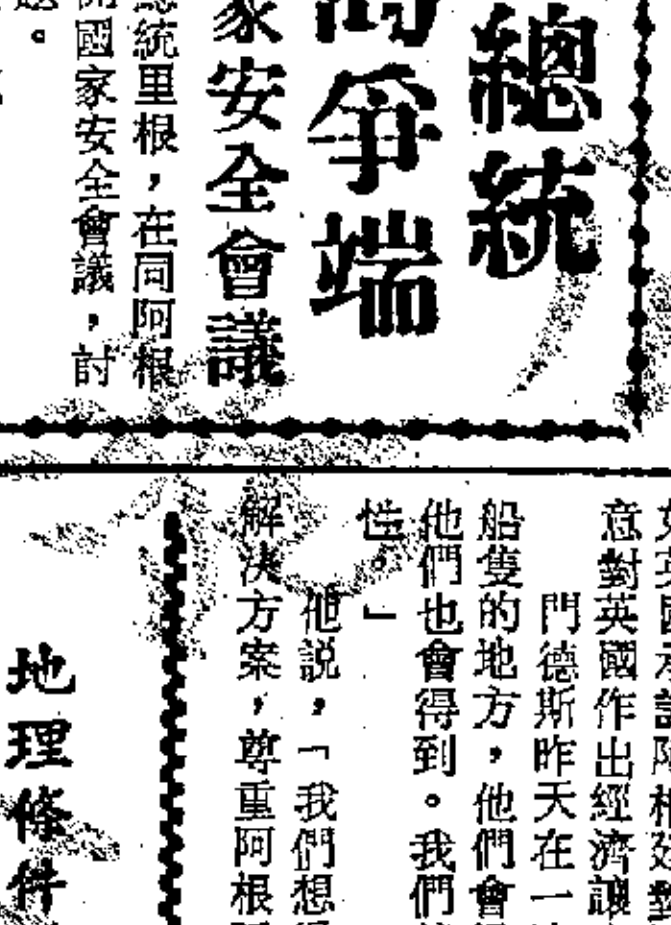 總統
爭端
家安全會議
總統里根，在同阿根
開國家安全會議，討
意對英國作出經濟讓
門德斯昨天在一
船隻的地方，他們會
他們也會得到。我們
性。」
他説，「我們想
解決方案，尊重阿根
地理條件